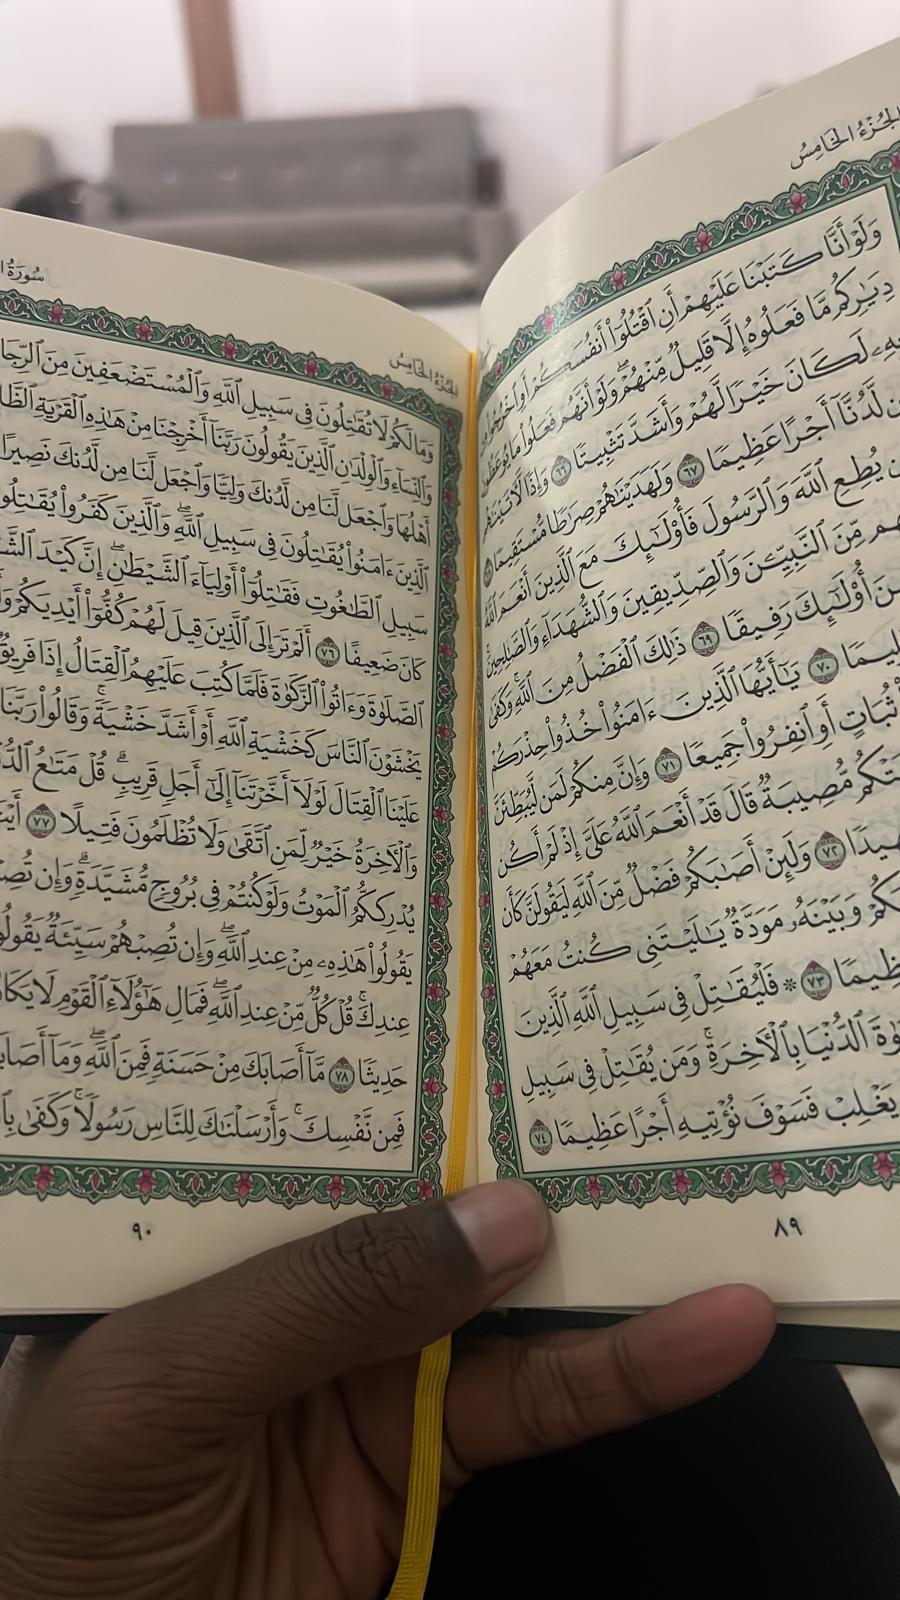 الجُزْءُ الخَامِسُ
وَلَوْ أَنَّا كَتَبْنَا عَلَيْهِمْ أَنِ ٱقْتُلُوٓاْ أَنفُسَكُمْ أَوِ ٱخْرُجُواْ مِن
دِيَٰرِكُم مَّا فَعَلُوهُ إِلَّا قَلِيلٌ مِّنْهُمْ ۖ وَلَوْ أَنَّهُمْ فَعَلُواْ مَا يُوعَظُونَ
بِهِۦ لَكَانَ خَيْرًا لَّهُمْ وَأَشَدَّ تَثْبِيتًا ٦٦ وَإِذًا لَّأٓتَيْنَٰهُم
لَّدُنَّآ أَجْرًا عَظِيمًا ٦٧ وَلَهَدَيْنَٰهُمْ صِرَٰطًا مُّسْتَقِيمًا ٦٨
يُطِعِ ٱللَّهَ وَٱلرَّسُولَ فَأُوْلَٰٓئِكَ مَعَ ٱلَّذِينَ أَنْعَمَ ٱللَّهُ
مِّنَ ٱلنَّبِيِّـۧنَ وَٱلصِّدِّيقِينَ وَٱلشُّهَدَآءِ وَٱلصَّٰلِحِينَ ۚ
أُوْلَٰٓئِكَ رَفِيقًا ٦٩ ذَٰلِكَ ٱلْفَضْلُ مِنَ ٱللَّهِ ۚ وَكَفَىٰ
٧٠ يَٰٓأَيُّهَا ٱلَّذِينَ ءَامَنُواْ خُذُواْ حِذْرَكُمْ
ثُبَاتٍ أَوِ ٱنفِرُواْ جَمِيعًا ٧١ وَإِنَّ مِنكُمْ لَمَن لَّيُبَطِّئَنَّ
مُّصِيبَةٌ قَالَ قَدْ أَنْعَمَ ٱللَّهُ عَلَىَّ إِذْ لَمْ أَكُن
٧٢ وَلَئِنْ أَصَٰبَكُمْ فَضْلٌ مِّنَ ٱللَّهِ لَيَقُولَنَّ كَأَن
وَبَيْنَهُۥ مَوَدَّةٌ يَٰلَيْتَنِى كُنتُ مَعَهُمْ
٧٣ ۞ فَلْيُقَٰتِلْ فِى سَبِيلِ ٱللَّهِ ٱلَّذِينَ
ٱلدُّنْيَا بِٱلْأٓخِرَةِ ۚ وَمَن يُقَٰتِلْ فِى سَبِيلِ
يَغْلِبْ فَسَوْفَ نُؤْتِيهِ أَجْرًا عَظِيمًا ٧٤
٨٩
الجُزْءُ الخَامِسُ
سُورَةُ
وَمَا لَكُمْ لَا تُقَٰتِلُونَ فِى سَبِيلِ ٱللَّهِ وَٱلْمُسْتَضْعَفِينَ مِنَ
وَٱلنِّسَآءِ وَٱلْوِلْدَٰنِ ٱلَّذِينَ يَقُولُونَ رَبَّنَآ أَخْرِجْنَا مِنْ هَٰذِهِ ٱلْقَرْيَةِ
أَهْلُهَا وَٱجْعَل لَّنَا مِن لَّدُنكَ وَلِيًّا وَٱجْعَل لَّنَا مِن لَّدُنكَ نَصِيرًا
ٱلَّذِينَ ءَامَنُواْ يُقَٰتِلُونَ فِى سَبِيلِ ٱللَّهِ ۖ وَٱلَّذِينَ كَفَرُواْ
سَبِيلِ ٱلطَّٰغُوتِ فَقَٰتِلُوٓاْ أَوْلِيَآءَ ٱلشَّيْطَٰنِ ۖ إِنَّ كَيْدَ
كَانَ ضَعِيفًا ٧٦ أَلَمْ تَرَ إِلَى ٱلَّذِينَ قِيلَ لَهُمْ كُفُّوٓاْ أَيْدِيَكُمْ
ٱلصَّلَوٰةَ وَءَاتُواْ ٱلزَّكَوٰةَ فَلَمَّا كُتِبَ عَلَيْهِمُ ٱلْقِتَالُ إِذَا فَرِيقٌ
يَخْشَوْنَ ٱلنَّاسَ كَخَشْيَةِ ٱللَّهِ أَوْ أَشَدَّ خَشْيَةً ۚ وَقَالُواْ رَبَّنَا
عَلَيْنَا ٱلْقِتَالَ لَوْلَآ أَخَّرْتَنَآ إِلَىٰٓ أَجَلٍ قَرِيبٍ ۗ قُلْ مَتَٰعُ
وَٱلْأٓخِرَةُ خَيْرٌ لِّمَنِ ٱتَّقَىٰ وَلَا تُظْلَمُونَ فَتِيلًا ٧٧
يُدْرِككُّمُ ٱلْمَوْتُ وَلَوْ كُنتُمْ فِى بُرُوجٍ مُّشَيَّدَةٍ ۗ وَإِن
يَقُولُواْ هَٰذِهِۦ مِنْ عِندِ ٱللَّهِ ۖ وَإِن تُصِبْهُمْ سَيِّئَةٌ
عِندِكَ ۚ قُلْ كُلٌّ مِّنْ عِندِ ٱللَّهِ ۖ فَمَالِ هَٰٓؤُلَآءِ ٱلْقَوْمِ لَا
حَدِيثًا ٧٨ مَّآ أَصَابَكَ مِنْ حَسَنَةٍ فَمِنَ ٱللَّهِ ۖ وَمَآ
فَمِن نَّفْسِكَ ۚ وَأَرْسَلْنَٰكَ لِلنَّاسِ رَسُولًا ۚ وَكَفَىٰ
٩٠